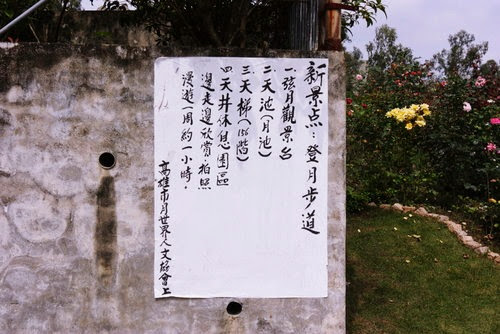 新景点：登月步道
一弦月觀景台
二天池（月池）
三天梯（156階）
四天井休息園區
邊走邊欣賞、拍照
漫遊（周約一小時。
高雄市月世界人文協會上